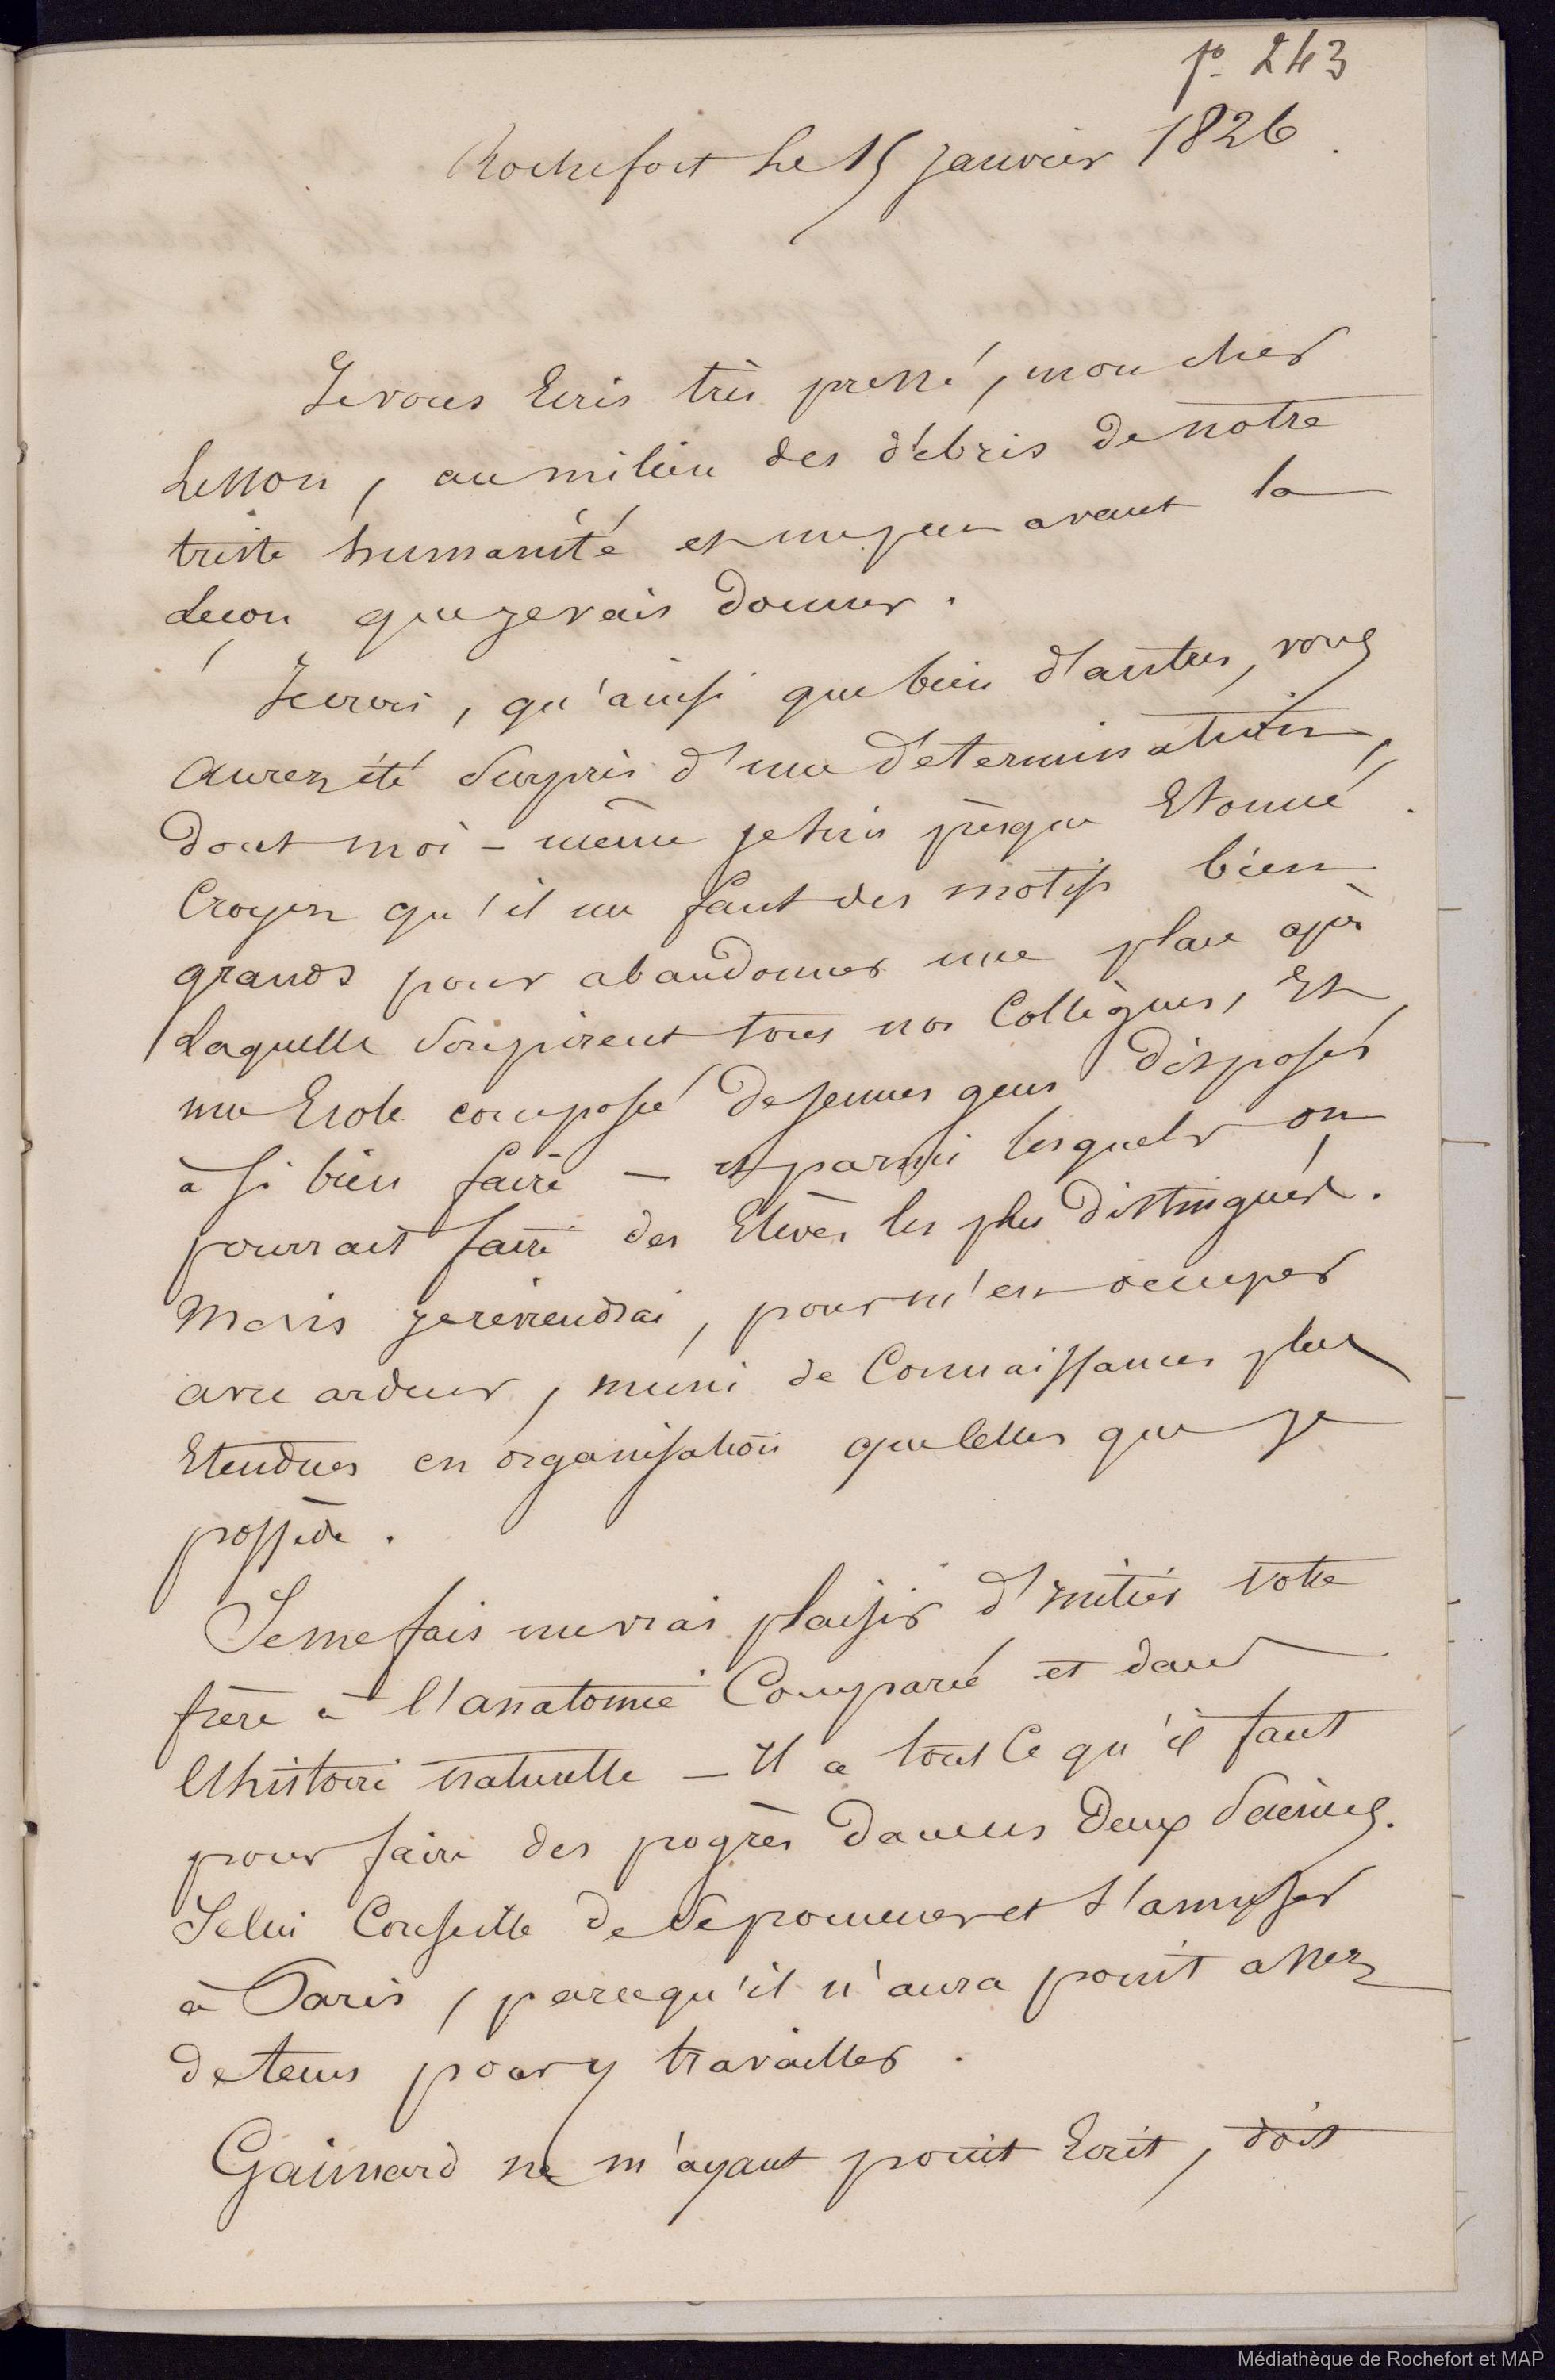 po 243
Rochefort le 15 janvier 1826.
Je vous Ecris très pressé, mon cher
Lesson, au milieu des débris de notre
triste humanité et un peu avant la
Leçon que je vais donner.
Je crois, qu'ainsi que bien d'autres, vous
aurez été surpris d'une détermination,
dont moi-même je suis presque Etonné.
Croyez qu'il me faut des motifs bien
grands pour abandonner une place après
Laquelle soupirent tous nos Collègues, Et
une Ecole composée de jeunes gens disposés
à si bien faire — et parmi lesquels on
pourrait faire des Elèves les plus distingués.
Mais je reviendrai, pour m'en occuper
avec ardeur, muni de Connaissances plus
Etendues en organisation que celles que je
possède.
Je me fais un vrai plaisir d'initier votre
frère à l'anatomie Comparée et dans
l'histoire naturelle — Il a tout Ce qu'il faut
pour faire des progrès dans ces Deux Sciences.
Je lui Conseille de se promener et s'amuser
à Paris, parcequ'il n'aura point assez
de tems pour y travailler.
Gaimard ne m'ayant point Ecrit, doit
Médiathèque de Rochefort et MAP